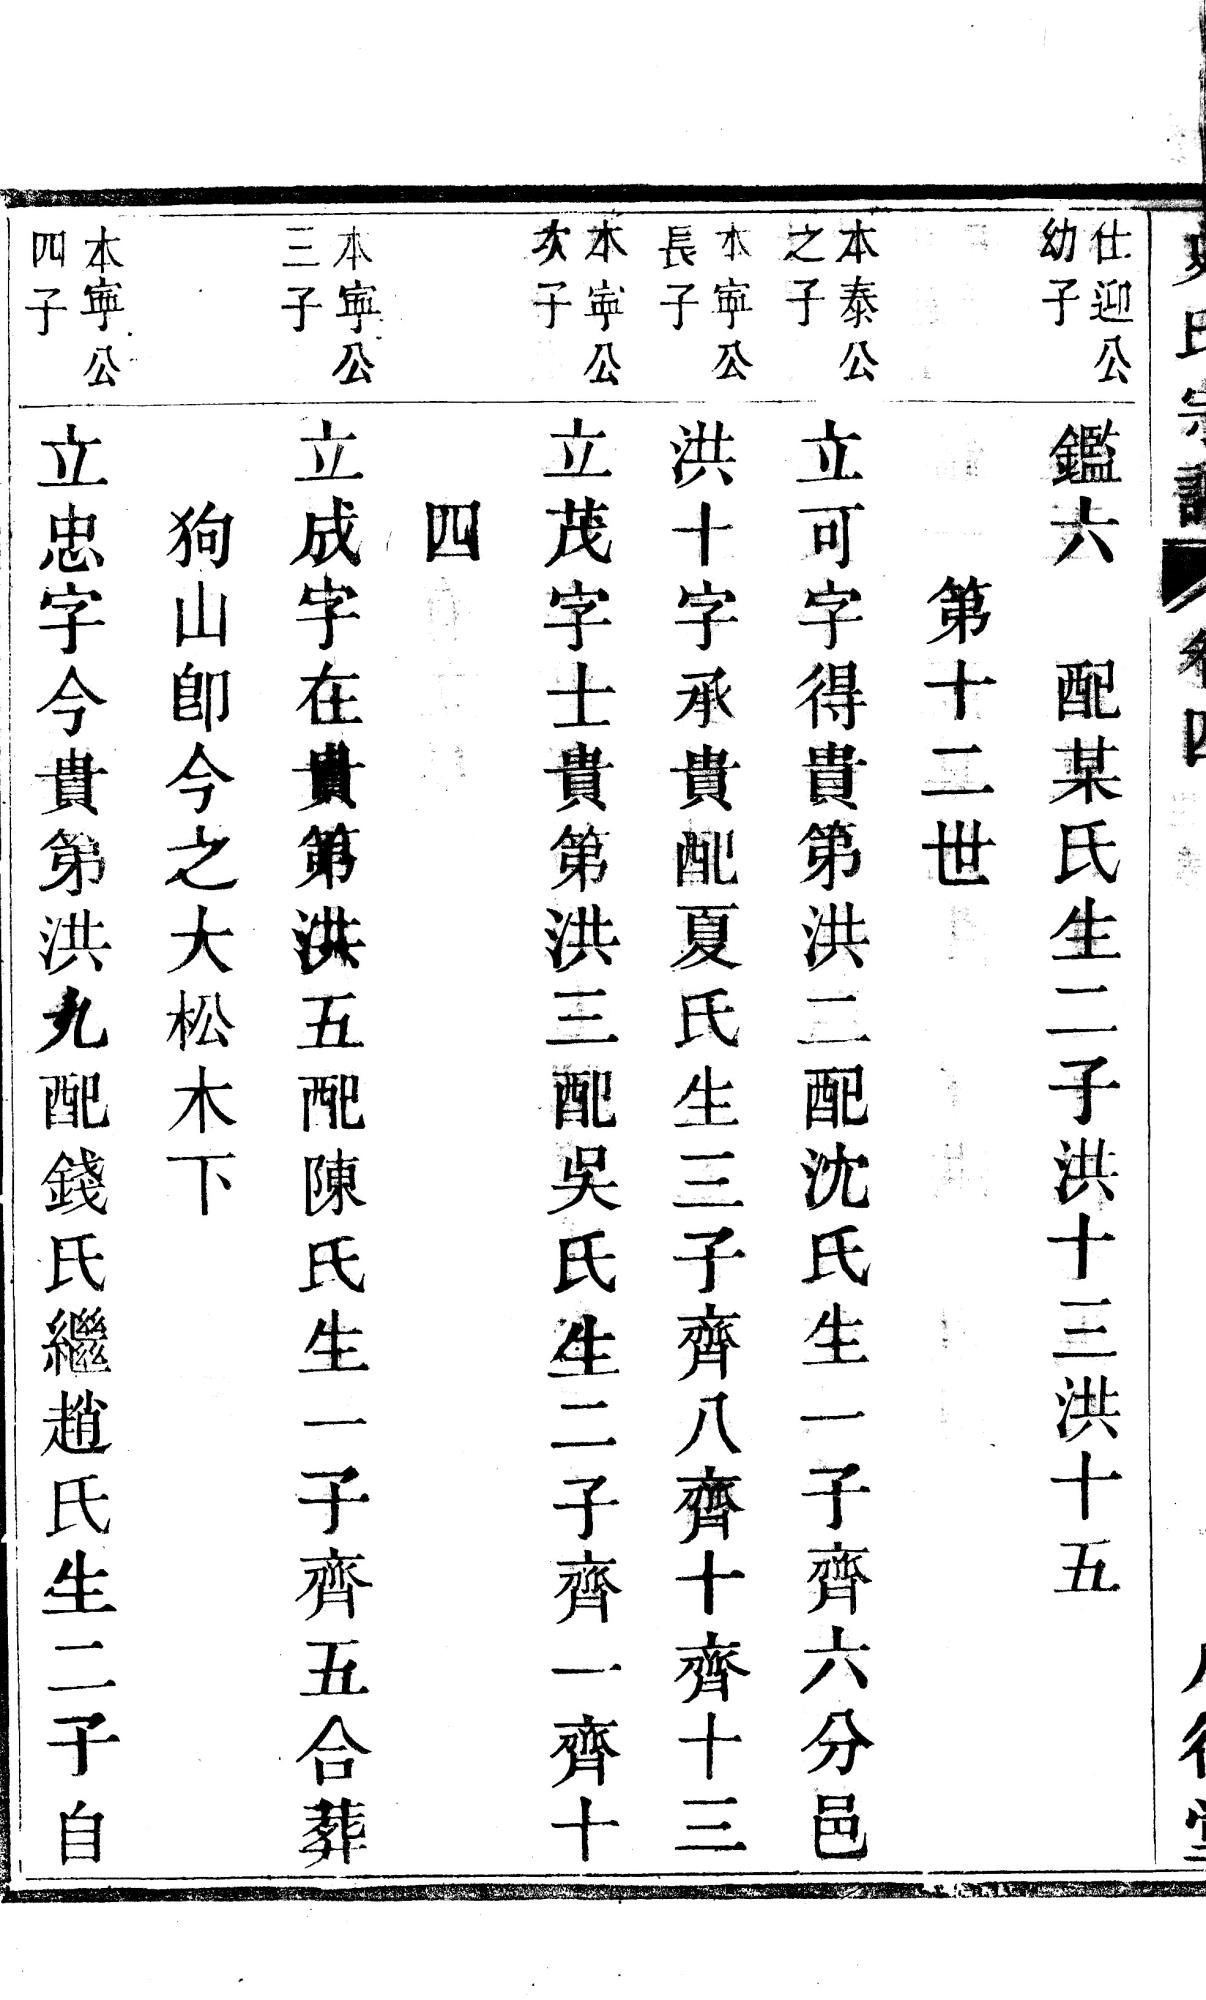 氏宗譜 卷四
仕迎公
幼子
鑑六　配某氏生二子洪十三洪十五
第十二世
本泰公
之子
立可字得貴第洪二配沈氏生一子齊六分邑
本寧公
長子
洪十字承貴配夏氏生三子齊八齊十齊十三
本寧公
次子
立茂字士貴第洪三配吳氏生二子齊一齊十
四
本寧公
三子
立成字在貴第洪五配陳氏生一子齊五合葬
狗山卽今之大松木下
本寧公
四子
立忠字今貴第洪九配錢氏繼趙氏生二子自